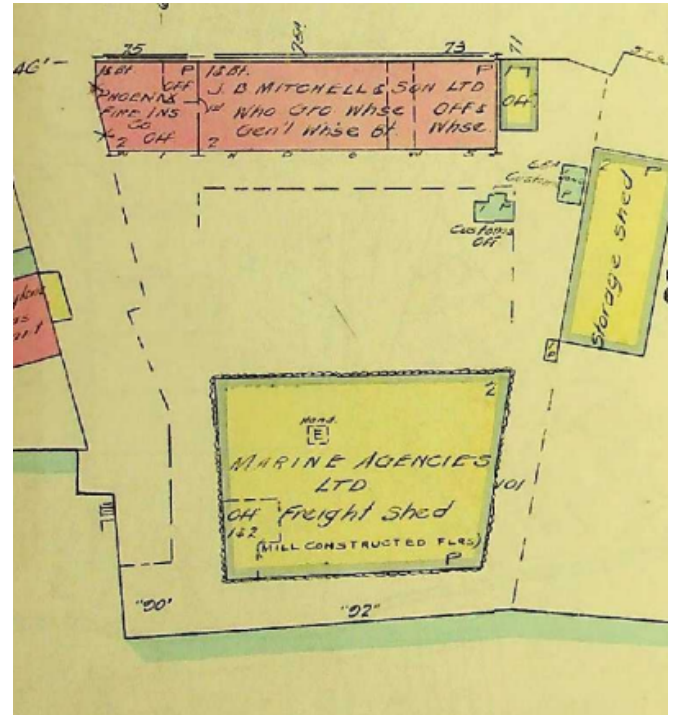 75
75½
73
71
46'
1&Bt.
P
OFF
PHOENIX
FIRE INS
CO
2 OFF
1&Bt.
P
J. B MITCHELL & SON LTD
Who Gro Whse OFF&
Gen'l Whse Bt. Whse
2
1
Off
Customs
P
1 P
Customs
Off
2
P
Storage shed
2
Hand.
E
MARINE AGENCIES
LTD
101
Off Freight Shed
1&2
(MILL CONSTRUCTED FLRS)
P
"90'
"92"